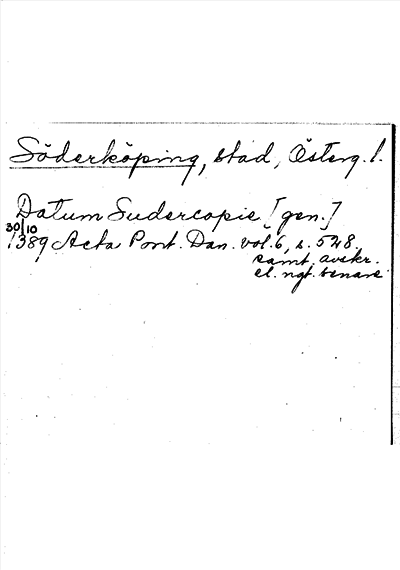 Söderköping, stad, Österg. l.
Datum Sudercopie [gen.]
30/10
1389 Acta Pont. Dan. vol. 6, s. 528,
samt. avskr.
el. ngt. senare